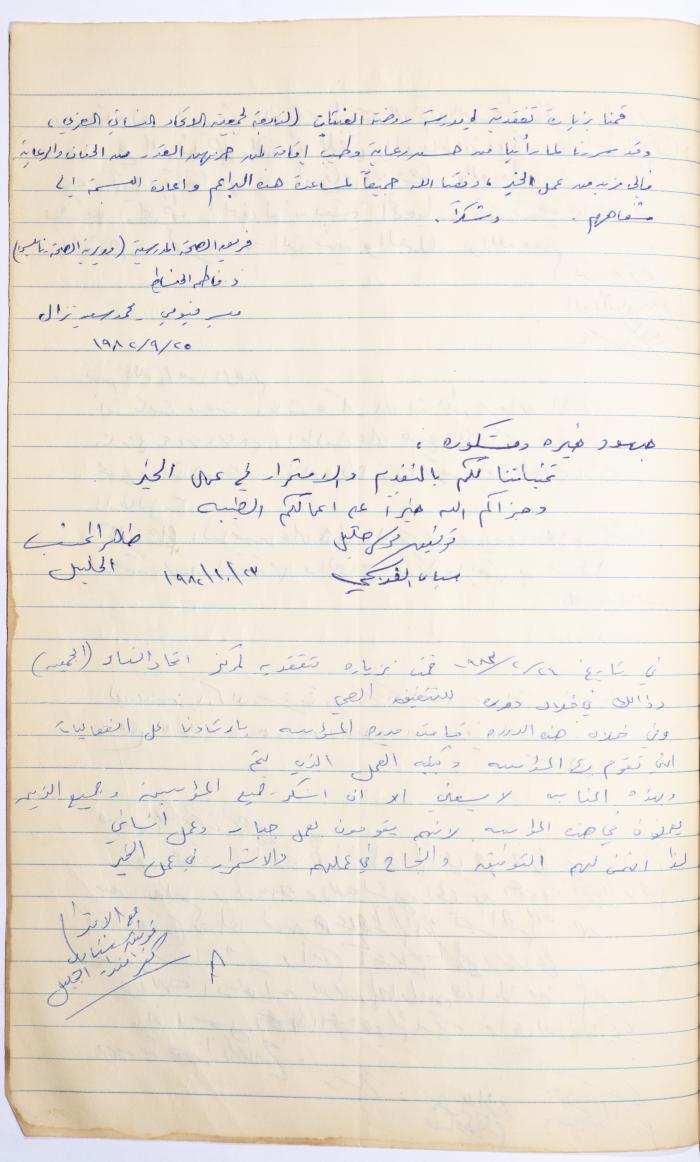 قمنا بزيارة تفقدية لمدرسة روضة الفتيات (التابعة لجمعية الاتحاد النسائي العربي)،
وقد سررنا لما رأينا من حسن رعاية وطيب إقامة لمن حرمهن القدر من الحنان والرعاية
فإلى مزيد من عمل الخير، وفقنا الله جميعاً لمساعدة هذه البراعم واعادة البسمة إلى
شفاههم . وشكراً .
فريق الصحة المدرسية (مديرية الصحة نابلس)
د. فاطمة الخياط
فيومي - محمد سعيد نزال
١٩٨٢/٩/٢٥
جهود خيره ومشكوره ،
تمنياتنا لكم بالتقدم والاستمرار في عمل الخير
وجزاكم الله خيراً على اعمالكم الطيبه
توفيق
الخليل
١٩٨٢/١٠/٢٣
في تاريخ ١٩٨٣/٢/٢٦ قمت بزياره تفقديه لمركز اتحاد النساء (الجمعية)
وذالك في خلال دوره للتثقيف الصحي
وفي خلال هذه الدوره قامت مديره المؤسسه بارشادنا على الفعاليات
التي تقوم بها المؤسسه وكيفية العمل الذي يتم
وبهذه المناسبه لا يسعني الا ان اشكر جميع المؤسسين وجميع الذين
يعملون في هذه المؤسسه لانهم يقومون بعمل جبار وعمل انساني
لذا اتمنى لهم التوفيق والنجاح في عملهم والاستمرار في عمل الخير